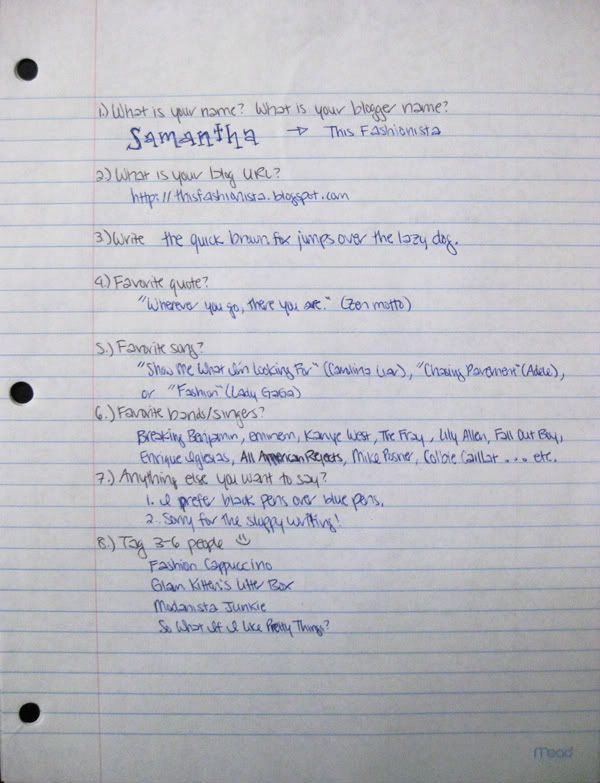 1.) What is your name? What is your blogger name?
Samantha → This Fashionista
2.) What is your blog URL?
http://thisfashionista.blogspot.com
3.) Write the quick brown fox jumps over the lazy dog.
4.) Favorite quote?
"Wherever you go, there you are." (Zen motto)
5.) Favorite song?
"Show Me What I'm Looking For" (Carolina Liar), "Chasing Pavement" (Adele),
or "Fashion" (Lady GaGa)
6.) Favorite bands/singers?
Breaking Benjamin, eminem, Kanye West, The Fray, Lily Allen, Fall Out Boy,
Enrique Iglesias, All American Rejects, Mike Posner, Colbie Caillat . . . etc.
7.) Anything else you want to say?
1. I prefer black pens over blue pens.
2. Sorry for the sloppy writing!
8.) Tag 3-6 people ☺
Fashion Cappuccino
Glam Kitten's Litter Box
Modanista Junkie
So What If I Like Pretty Things?
mead